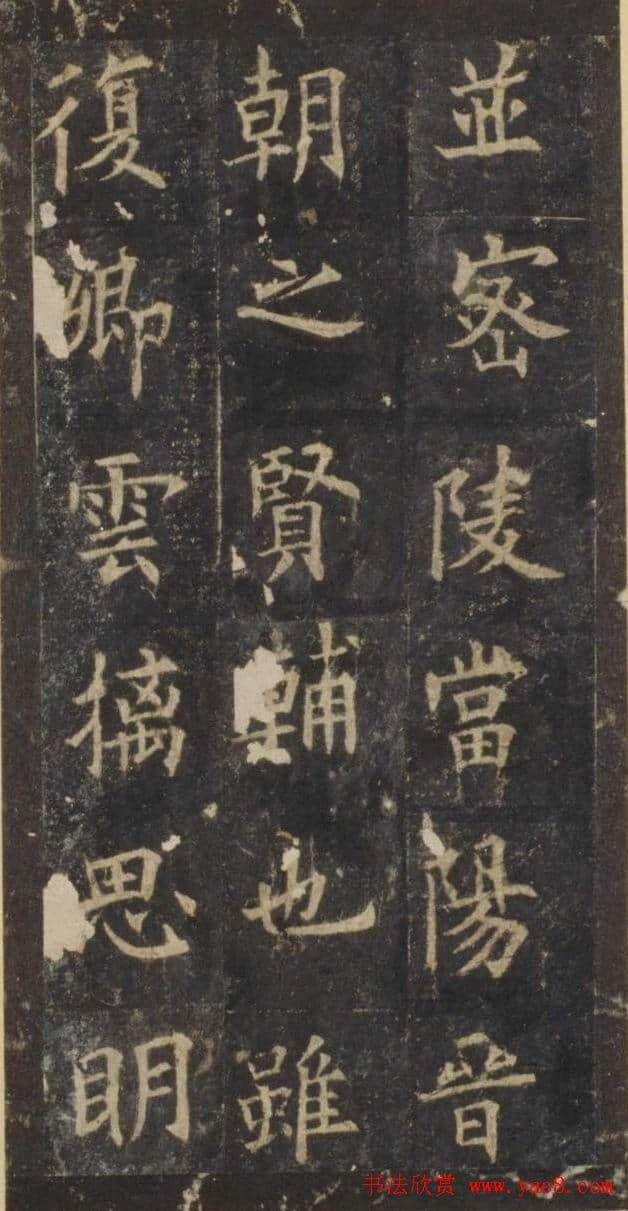 並密陵當陽晉
朝之賢輔也雖
復卿雲摛思眀
书法欣赏 www.yac8.com